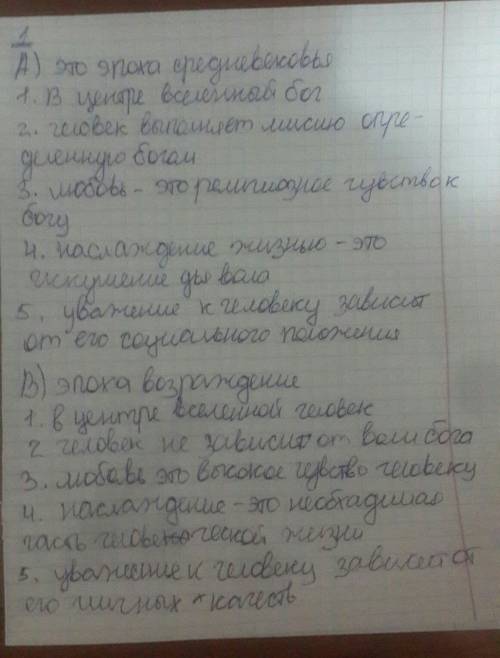 1
А) это эпоха средневековья
1. В центре вселенный бог
2. человек выполняет мисию опре-
деленную богом
3. любовь - это религиозное чувство к
богу
4. наслаждение жизнью - это
искушение дьвола
5. уважение к человеку зависит
от его социального положения
В) эпоха возраждение
1. в центре вселенной человек
2 человек не зависит от воли бога
3. любовь это высокое чувство человеку
4. наслаждение - это необхадимая
часть человеческой жизни
5. уважение к человеку зависет от
его личных качеств